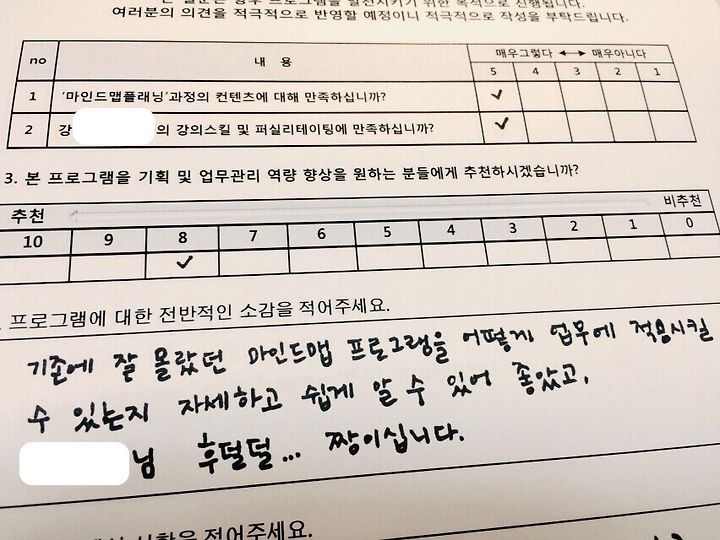 여러분의 의견을 적극적으로 반영할 예정이니 적극적으로 작성을 부탁드립니다.
no 내 용 매우그렇다 매우아니다
5 4 3 2 1
1 '마인드맵플래닝'과정의 컨텐츠에 대해 만족하십니까? ✓
2 강 의 강의스킬 및 퍼실리테이팅에 만족하십니까? ✓
3. 본 프로그램을 기획 및 업무관리 역량 향상을 원하는 분들에게 추천하시겠습니까?
추천 비추천
10 9 8 7 6 5 4 3 2 1 0
✓
프로그램에 대한 전반적인 소감을 적어주세요.
기존에 잘 몰랐던 마인드맵 프로그램을 어떻게 업무에 적용시킬
수 있는지 자세하고 쉽게 알 수 있어 좋았고,
님 후덜덜... 짱이십니다.
적어주세요.